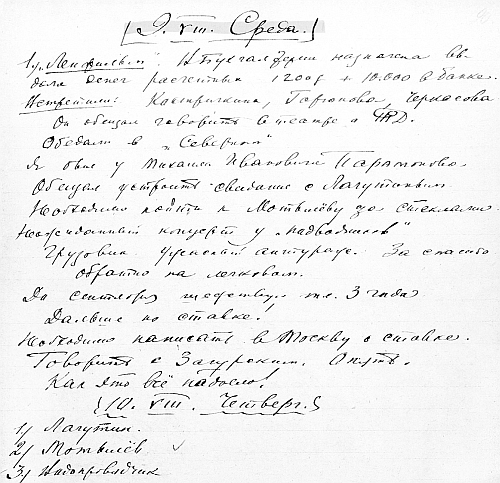 9. VIII. Среда.
1) „Ленфильм". В бухгалтерии назначена вы-
дача денег расчетных 1200 + 10.000 в банке.
Встретили: Кон, Горюнова, Черкасова
Он обещал говорить в театре о
Обедали в „Северном"
Я был у Михаила Ивановича Парамонова
Обещал устроить свидание с Лагутиным
Необходимо пойти к Мотылёву за стеклами.
Неожиданный концерт у „подводников"
Грузовик. Ужасный антураж. За спасибо
обратно на легковом.
До сентября 3 года
Дальше по ставке!
Необходимо написать в Москву о ставке.
Говорить с Загурским. Опять.
Как это всё надоело!
10. VIII. Четверг.
1) Лагутин.
2) Мотылёв
3)